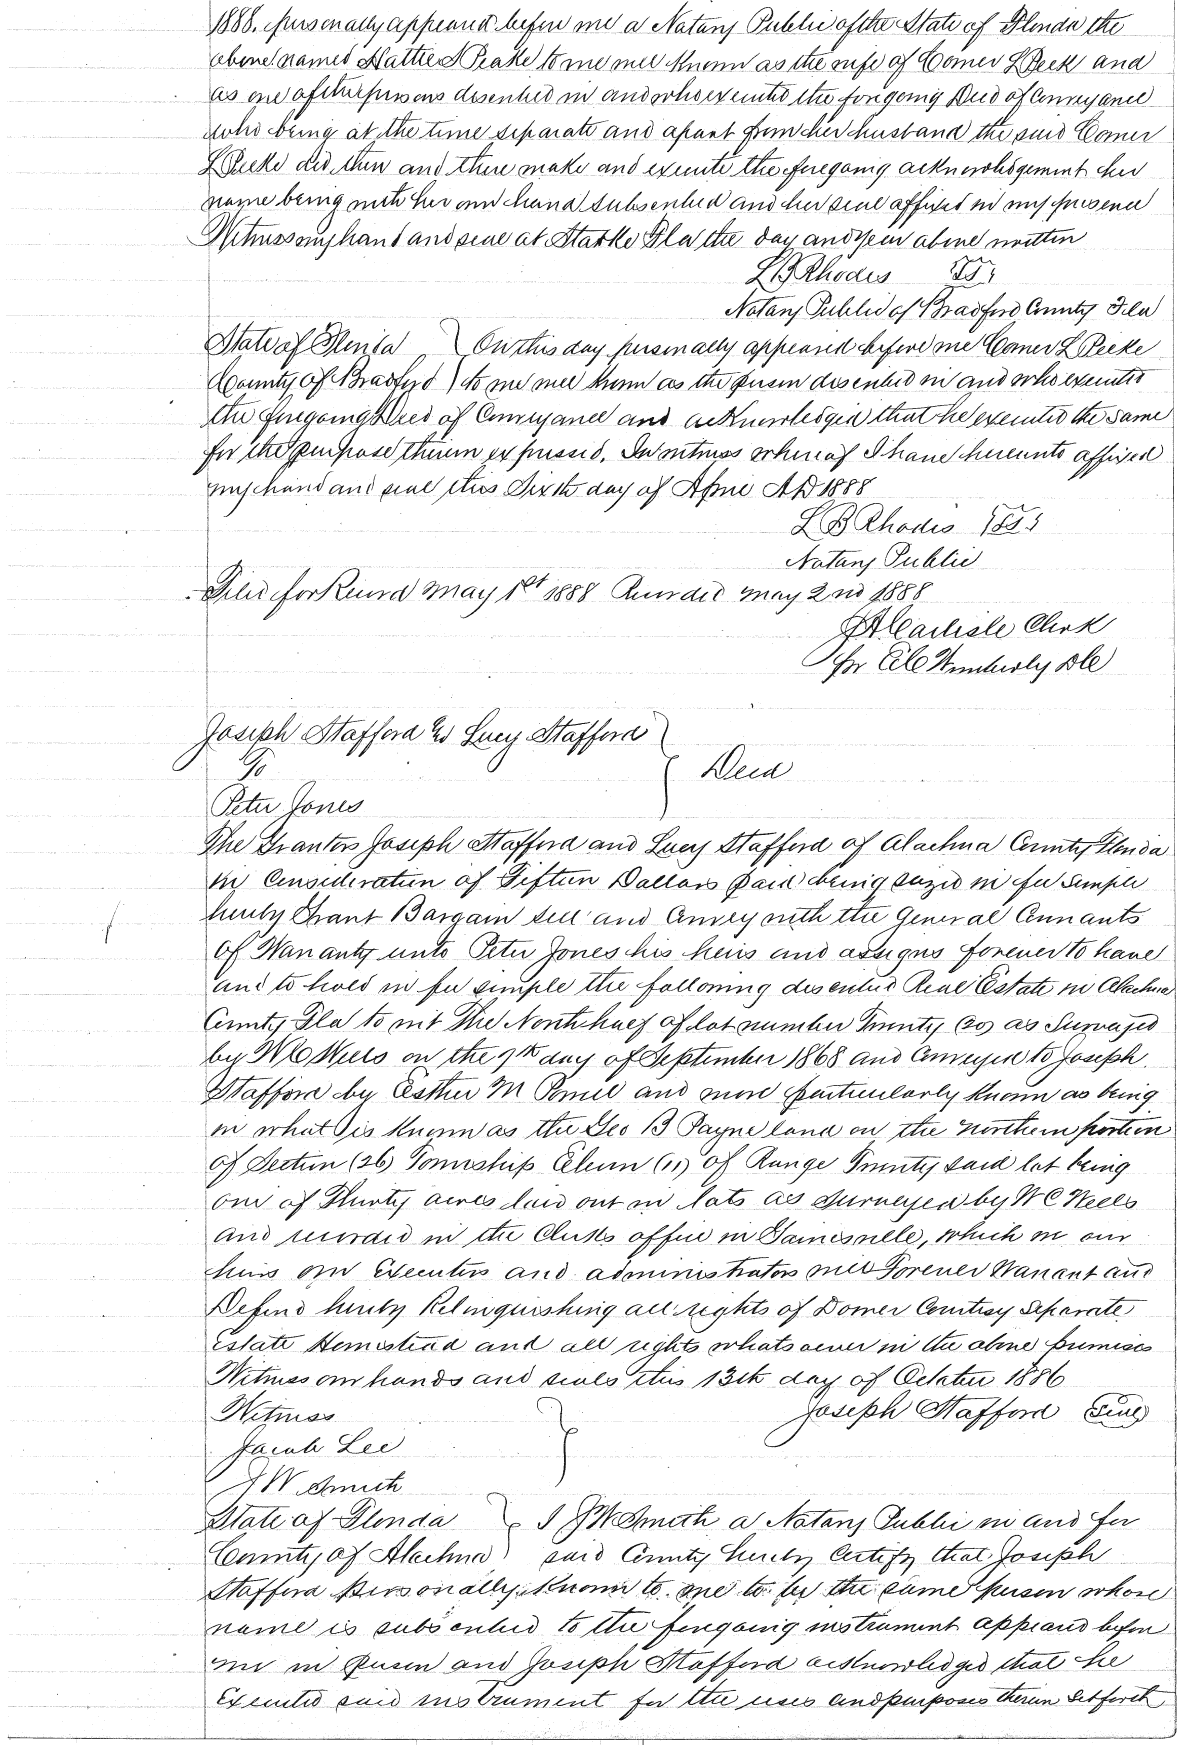 1888. personally appeared before me a Notary Public of the State of Florida the
above named Hattie S Peake to me well known as the wife of Comer L Peek and
as one of the persons described in and who executed the foregoing Deed of Conveyance
who being at the time separate and apart from her husband the said Comer
L Peeke did then and there make and execute the foregoing acknowledgement her
name being with her own hand subscribed and her seal affixed in my presence
Witness my hand and seal at Starke Fla the day and year above written
L B Rhodes
Notary Public of Bradford County Fla
State of Florida On this day personally appeared before me Comer L Peeke
County of Bradford to me well known as the person described in and who executed
the foregoing Deed of Conveyance and acknowledged that he executed the same
for the purpose therein expressed. In witness whereof I have hereunto affixed
my hand and seal this Sixth day of April AD 1888
L B Rhodes
Notary Public
Filed for Record May 1st 1888 Recorded May 2nd 1888
J A Carlisle Clerk
for Wimberly DC
Joseph Stafford & Lucy Stafford
To
Deed
Peter Jones
The Grantors Joseph Stafford and Lucy Stafford of Alachua County Florida
in Consideration of Fifteen Dollars paid being seized in fee simple
hereby Grant Bargain sell and Convey with the General Covenants
of Warranty unto Peter Jones his heirs and assigns forever to have
and to hold in fee simple the following described Real Estate in Alachua
County Fla to wit The North half of lot number Twenty (20) as Surveyed
by W C Wells on the 9th day of September 1868 and Conveyed to Joseph
Stafford by Esther M and more particularly known as being
in what is known as the Geo B Payne land on the northern portion
of Section (26) Township Eleven (11) of Range Twenty said lot being
one of Thirty acres laid out in lots as Surveyed by W C Wells
and recorded in the Clerks office in Gainesville, which we our
heirs our Executors and administrators will Forever Warrant and
Defend hereby Relinquishing all rights of Dower Courtesy Separate
Estate Homestead and all rights whatsoever in the above premises
Witness our hands and seals this 13th day of October 1886
Witness Joseph Stafford Seal
Jacob Lee
J W Smith
State of Florida I J W Smith a Notary Public in and for
County of Alachua said County hereby Certify that Joseph
Stafford personally known to me to be the same person whose
name is subscribed to the foregoing instrument appeared before
me in person and Joseph Stafford acknowledged that he
Executed said instrument for the uses and purposes therein set forth